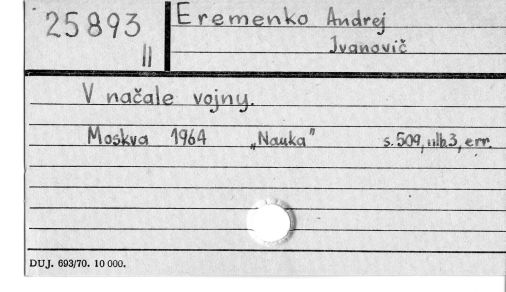 25893
II
Eremenko Andrej
Ivanovič
V načale vojny.
Moskva 1964 „Nauka" s. 509, 3, err.
DUJ. 693/70. 10 000.